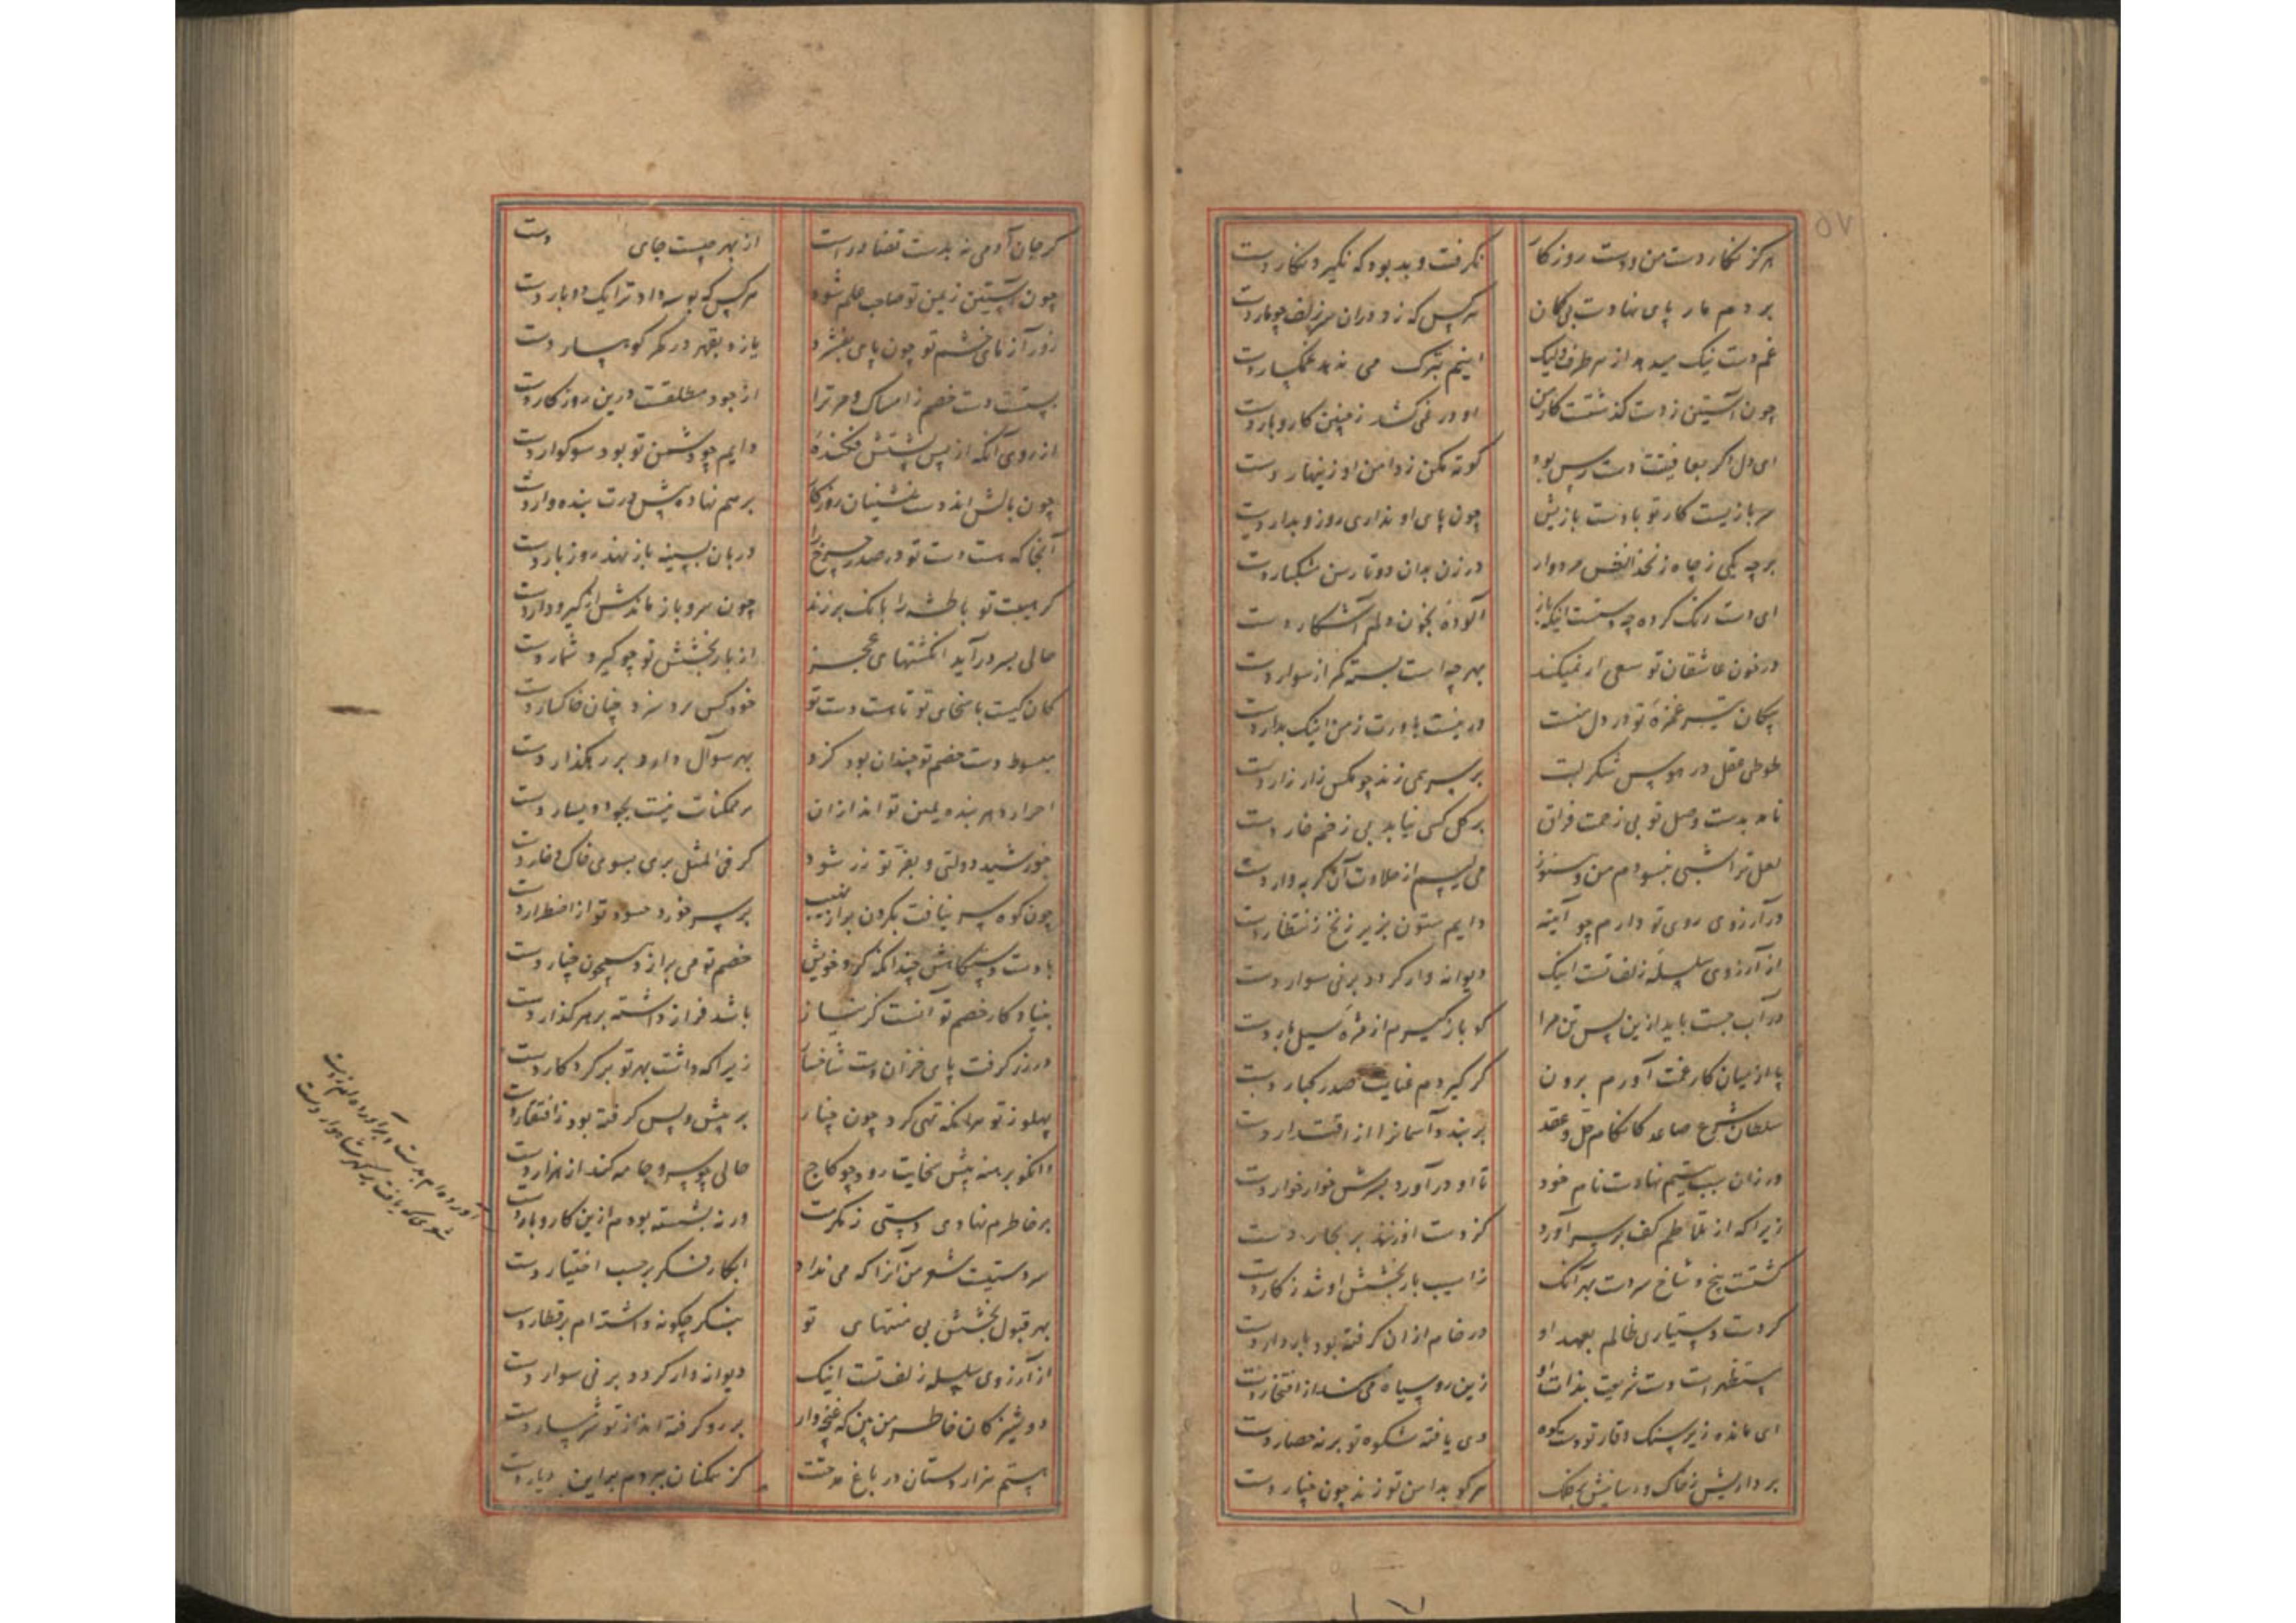 هرگز نگار دست من و دست روزگار
نگرفت و بد بود که نگیرد نگار دست
بر دم مار پای نهادست بی کان
هر کس که زد در آن سر زلف چو مار دست
غم دست نیک میدهد از هر طرف ولیک
اینم بترک می ندهد غمگسار دست
چون آستین ز دست گذشتست کار من
او در نمی کشد ز چنین کار و بار دست
ای دل اگر بعافیتت دست رس بود
کوته مکن ز دامن او زینهار دست
سر بازیست کار تو با دست بازیش
چون پای او نداری رو زو بدار دست
در زن بدان دو تا رسن مشکبار دست
ای دست رنگ کرده چه دستست اینکه باز
آلوده بخون دلم آشکار دست
در خون عاشقان تو سعی ار نمیکند
بهر چه است بسته کمر از سوار دست
پیکان تیر غمزه تو در دل منست
ور نیست باورت ز من اینک بدار دست
طوطی عقل در هوس شکر لبت
بر سر همی زند چو مکس زار زار دست
ناید بدست وصل تو بی زحمت فراق
بر گل کسی نیابد بی زخم خار دست
لعل ترا شبی ببسودم من و هنوز
می لیسم از حلاوت آن گربه وار دست
در آرزوی روی تو دارم چو آینه
دایم ستون بزیر زنخ ز انتظار دست
از آرزوی سلسله زلف تست اینک
دیوانه وار کرد بر نی سوار دست
در آب جست باید ازین پس تن مرا
کو باز گیرم از مژه سیل بار دست
پا از میان کار غمت آورم برون
گر گیردم عنایت صدر کبار دست
سلطان شرع صاعد کانکام حل و عقد
بر بندد آسمانرا از اقتدار دست
ور زان سبب یتیم نهادست نام خود
تا او در آورد بسرش خوار خوار دست
زیرا که از تلاطم کف بر سر آورد
گر دست او زند بر بحار دست
گشتست پنج شاخ سر دست بهر آنک
ز آسیب بار بخشش او شد ز کار دست
کر دست دستیاری ظالم بعهد او
در خام از آن گرفته بود باردار دست
مستظهر است دست شریعت بذات او
زین رو سیاه می کند از افتخار دست
ای مانده زیر سنگ وقار تو دست کوه
وی یافته شکوه تو بر نه حصار دست
برداریش ز خاک و رسانیش بر فلک
هر کو بدامن تو زند چون چنار دست
گر جان آدمی نه بدست قضا درست
از بهر چیست جای دست
چون آستین ز یمن تو صاحب علم شود
هر کس که بوسه داد ترا یک دو بار دست
زور آزمای خشم تو چون پای بفشرد
یازد بقهر در کمر کوهسار دست
بستست دست خصم ز امساک و مر ترا
از جود مطلقست درین روزگار دست
از روی آنکه از پس پشتش فکنده
دایم چو دشمن تو بود سوگوار دست
چون بالش اند دست نشینان روزگار
بر هم نهاده پیش درت بنده وار دست
آنجا که هست دست تو در صدر چرخ را
دربان بسینه باز نهد روز بار دست
گر هیبت تو باطشه را بانگ بر زند
چون سرو باز ماندش از گیر و دار دست
حالی بسر در آید انگشتهای عجز
از بار بخشش تو چو گیرد شمار دست
کان کیست با سخای تو تا هست دست تو
خود کس برد سزد چنان خاکسار دست
مبسوط دست خصم تو چندان بود کزو
بهر سوآل دارد بر رهگذار دست
احرار دهر بنده یمین تواند از آن
بر ممکنات نیست بجود و یسار دست
خورشید دولتی و بفر تو زر شود
گر فی المثل بری بسوی خاک و خار دست
چون کوه سر نیافت بگردن بر از نهیب
بر سر خورد حسود تو از اضطرار دست
با دست و دستگاهش چندانکه کرد خویش
خصم تو می برآرد همچون چنار دست
بنیاد کار خصم تو آنست کز نیاز
باشد فراز داشته بر هر گذار دست
در زر گرفت پای خزان دست شاخسار
زیرا که داشت بهر تو بر کردگار دست
پهلو ز تو هر آنکه تهی کرد چون چنار
بر پیش و پس گرفته بود ز افتقار دست
وانکو برهنه پیش سخایت رود چو کاج
حالی چو سرو جامه کند از هزار دست
بر خاطرم نهادی دستی ز مکرمت
ورنه بشسته بودم ازین کار و بار دست
سر دستیست شعر من آنرا که می نداد
ابکار فکر بر حسب اختیار دست
بهر قبول بخشش بی منتهای تو
بنگر چگونه داشته ام بر قطار دست
از آرزوی سلسله زلف تست اینک
دیوانه وار کرد بر نی سوار دست
دوشیزگان خاطر من بین که غنچه وار
بر رو گرفته اند از تو شرمسار دست
بستم هزار دستان در باغ مدحتت
کز همگنان ببردم بر این دیار دست
آورده ام بدست
شعری که یافت بر گهر شاهوار دست